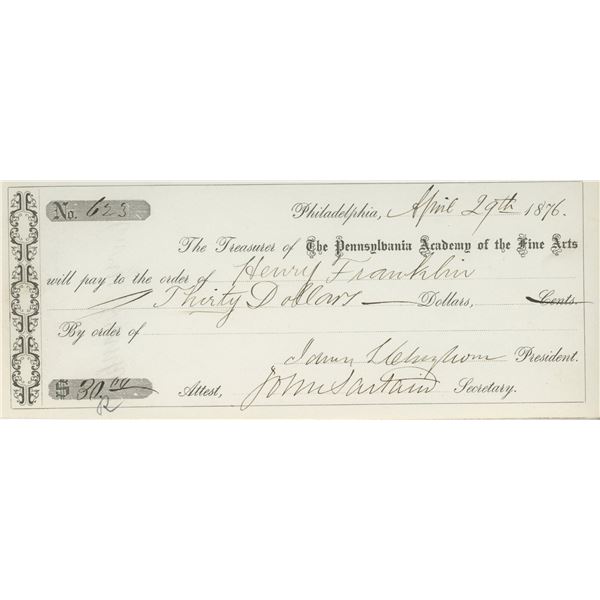 No. 623
Philadelphia, April 29th 1876.
The Treasurer of The Pennsylvania Academy of the Fine Arts
will pay to the order of Henry Franklin
Thirty Dollars Dollars, Cents.
By order of
President.
$ 30.00 Attest, John Sartain Secretary.